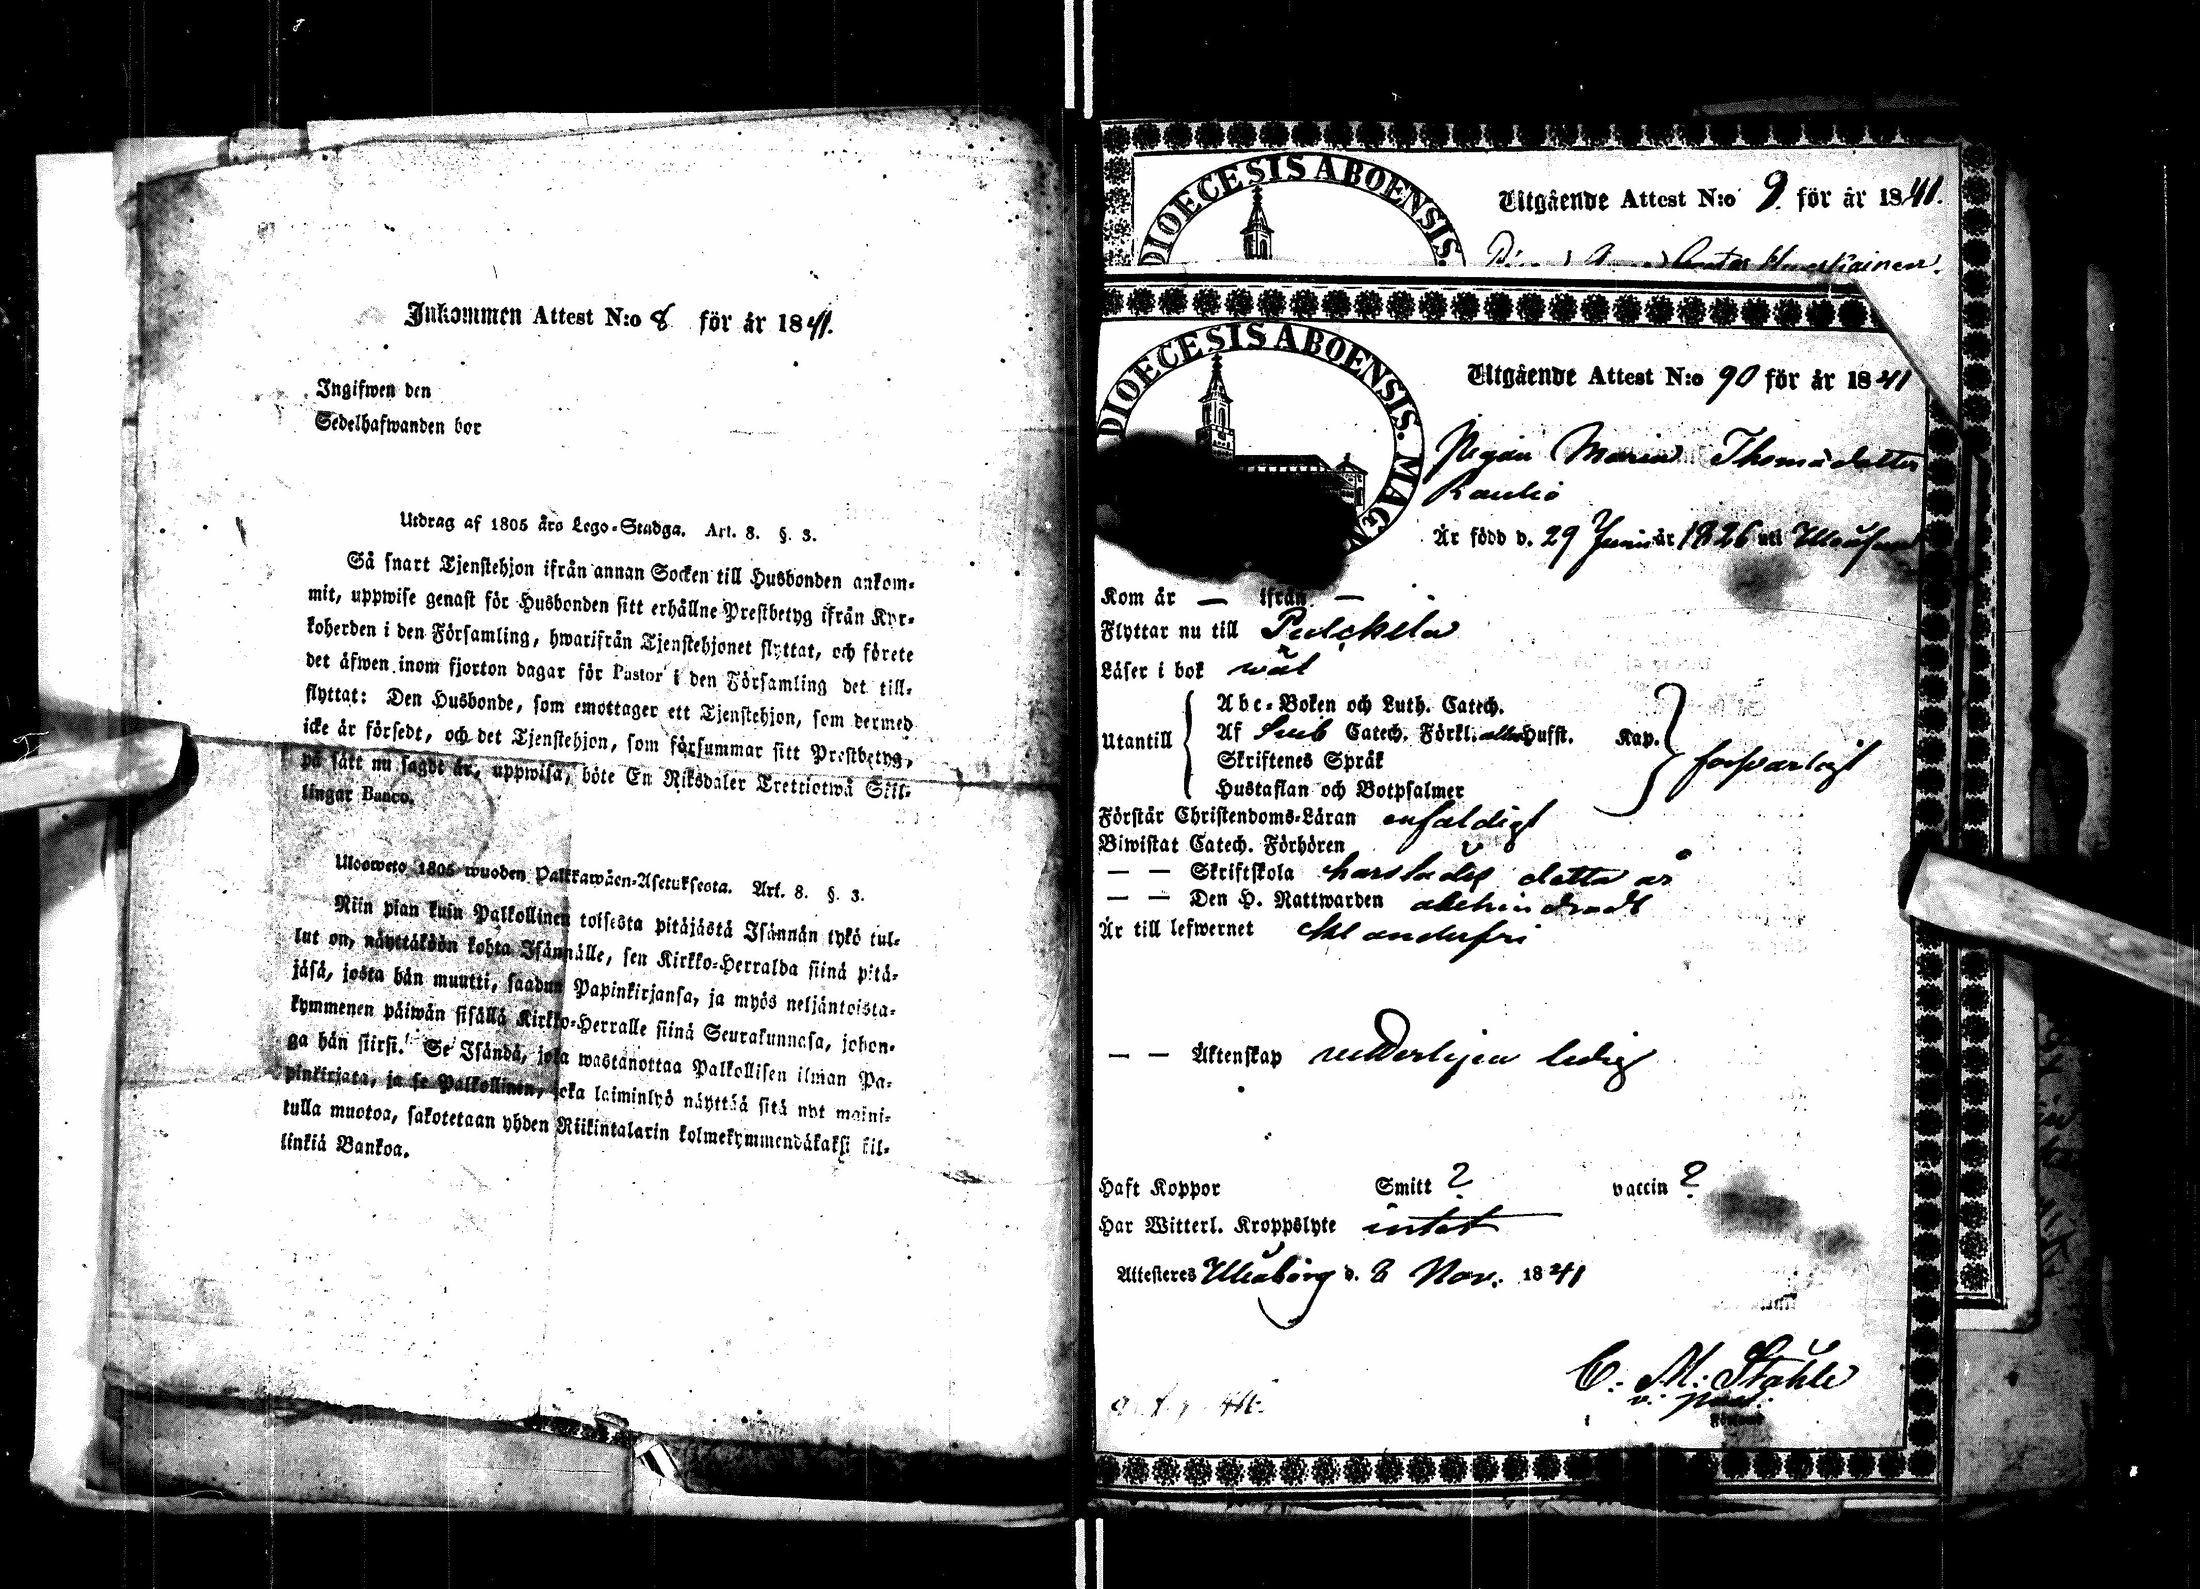 Inkommen Attest N:o 8 för år 1841.
Ingifwen den
Sedelhafwanden bor
Utdrag af 1805 års Lego-Stadga. Art. 8. §. 3.
Så snart Tjenstehjon ifrån annan Socken till Husbonden ankom-
mit, uppwise genast för Husbonden sitt erhållne Prestbetyg ifrån Kyr-
koherden i den Församling, hwarifrån Tjenstehjonet flyttat, och förete
det äfwen inom fjorton dagar för Pastor i den Församling det till-
flyttat: Den Husbonde, som emottager ett Tjenstehjon, som dermed
icke är försedt, och det Tjenstehjon, som försummar sitt Prestbetyg,
på sätt nu sagdt är, uppwisa, böte En Riksdaler Trettiotwå Skil-
lingar Banco.
Ulosweto 1805 wuoden Palkkawäen-Asetuksesta. Art. 8. §. 3.
Niin pian kuin Palkollinen toisesta pitäjästä Isännän tykö tul-
lut on, näyttäköön kohta Isännälle, sen Kirkko-Herralda siinä pitä-
jäsä, josta hän muutti, saadun Papinkirjansa, ja myös neljäntoista-
kymmenen päiwän sisällä Kirkko-Herralle siinä Seurakunnasa, johon-
ga hän siirsi. Se Isändä, joka wastanottaa Palkollisen ilman Pa-
pinkirjata, ja se Palkollinen, joka laiminlyö näyttää sitä nyt maini-
tulla muotoa, sakotetaan yhden Riikintalarin kolmekymmendäkaksi kil-
linkiä Bankoa.
DIOECESIS ABOENSIS.
Utgående Attest N:o 9. för år 1841.
DIOECESIS ABOENSIS. MAGN
Utgående Attest N:o 90 för år 1841
Pigan Maria Thomsdotter
Rautio
Är född d. 29 Juni år 1826 uti
Kom år — ifrån —
Flyttar nu till Pulckila
Läser i bok wäl
Utantill
Abc-Boken och Luth. Catech.
Af Sveb Catech. Förkl. Hufst. Kap.
Skriftenes Språk
Hustaflan och Botpsalmer
försvarligt
Förstår Christendoms-Läran enfaldigt
Biwistat Catech. Förhören
— — Skriftskola detta år
— — Den H. Nattwarden obehindradt
Är till lefwernet klanderfri
— — Äktenskap vetterligen ledig
Haft Koppor Smitt ? vaccin ?
Har Witterl. Kroppslyte intet
Attesteres Uleåborg d. 8 Nov. 1841
C. M. Ståhle
v. past.